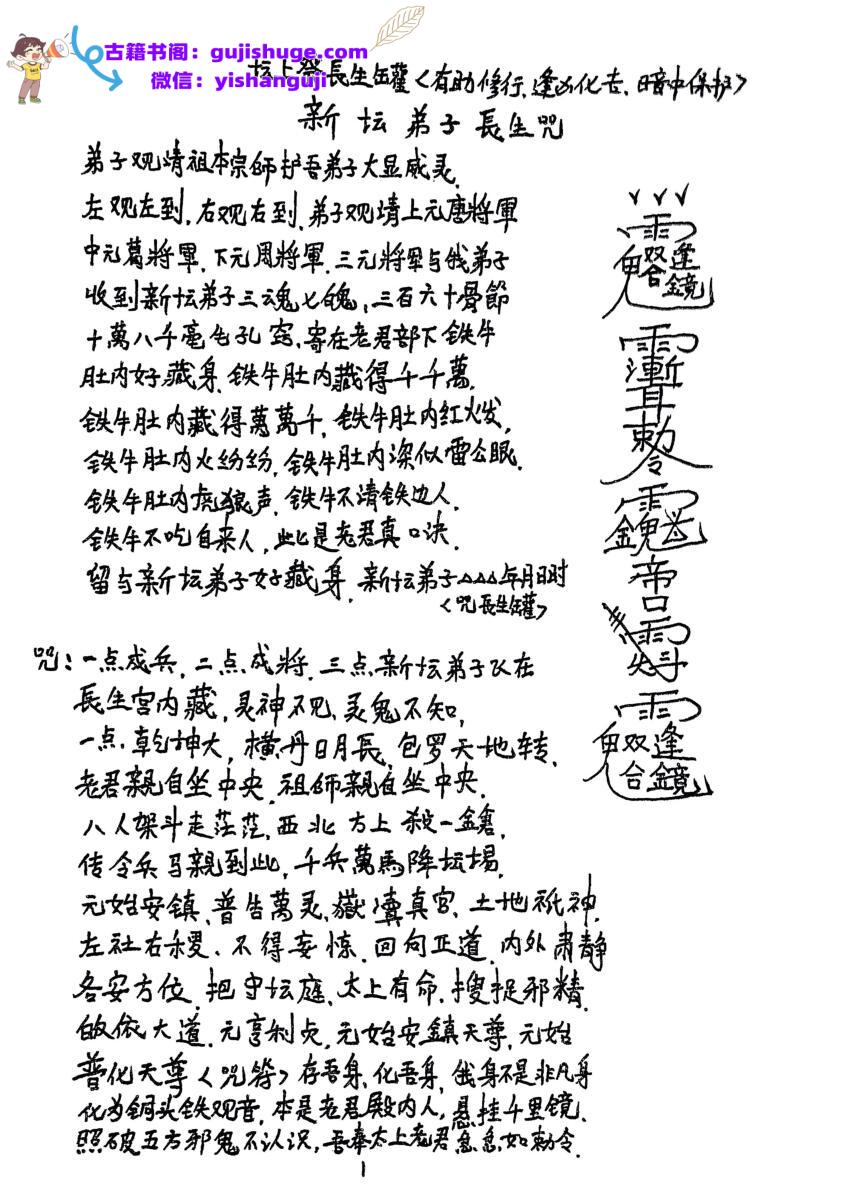 古籍书阁：gujishuge.com
微信：yishanguji
坛上祭長生罐<有助修行、逢凶化吉、暗中保护>
新坛弟子長生咒
弟子观靖祖本宗师护吾弟子大显威灵.
左观左到.右观右到.弟子观靖上元唐將軍
中元葛將軍.下元周將軍.三元將軍与俄弟子
收到新坛弟子三魂七魄,三百六十骨節
十萬八千毫毛孔窍,寄在老君部下铁牛
肚内好藏身.铁牛肚内藏得千千萬.
铁牛肚内藏得萬萬千,铁牛肚内红火发,
铁牛肚内火纷纷,铁牛肚内深似雷公眼.
铁牛肚内虎狼声.铁牛不請铁边人.
铁牛不吃自来人,此是老君真口诀.
留与新坛弟子好藏身.新坛弟子△△△年月日时
<咒長生罐>
咒:一点成兵,二点成將.三点新坛弟子以在
長生宫内藏,灵神不见、灵鬼不知,
一点.乾坤大,横丹日月長、包罗天地转.
老君亲自坐中央.祖师亲自坐中央.
八人架斗走茫茫,西北方上殺一鎗,
传令兵马亲到此,千兵萬馬降坛場.
元始安镇、普告萬灵.嶽瀆真宫、土地祇神.
左社右稷.不得妄惊.回向正道.内外肃静
各安方位.把守坛庭.太上有命.搜捉邪精.
皈依大道.元亨利贞,元始安鎮天尊,元始
普化天尊<咒符>存吾身.化吾身,俄身不是非凡身
化为铜头铁观音.本是老君殿内人,悬挂千里镜.
照破五方邪鬼不认识,吾奉太上老君急急如勅令.
雙逢
合鏡
漸
耳
勅令
帝
口
双逢
合鏡
1